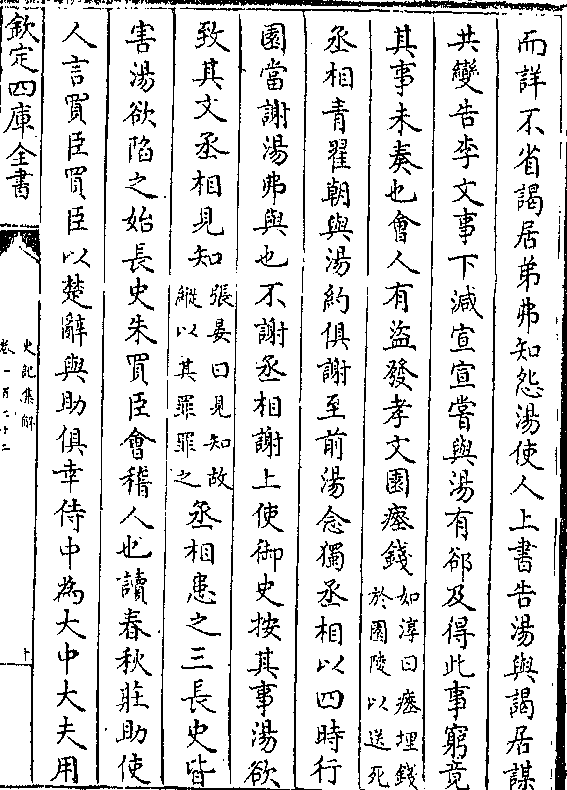 而詳不省謁居弟弗知怨湯使人上書告湯與謁居謀
共變告李文事下減宣宣嘗與湯有郤及得此事窮竟
其事未奏也會人有盜發孝文園瘞錢如淳曰瘞埋錢於園陵以送死
丞相青翟朝與湯約俱謝至前湯念獨丞相以四時行
園當謝湯弗與也不謝丞相謝上使御史按其事湯欲
致其文丞相見知張晏曰見知故縱以其罪罪之丞相患之三長史皆
害湯欲陷之始長史朱買臣會稽人也讀春秋莊助使
人言買臣買臣以楚辭與助俱幸侍中為大中大夫用
欽定四庫全書
史記集解
卷一百二十二
十